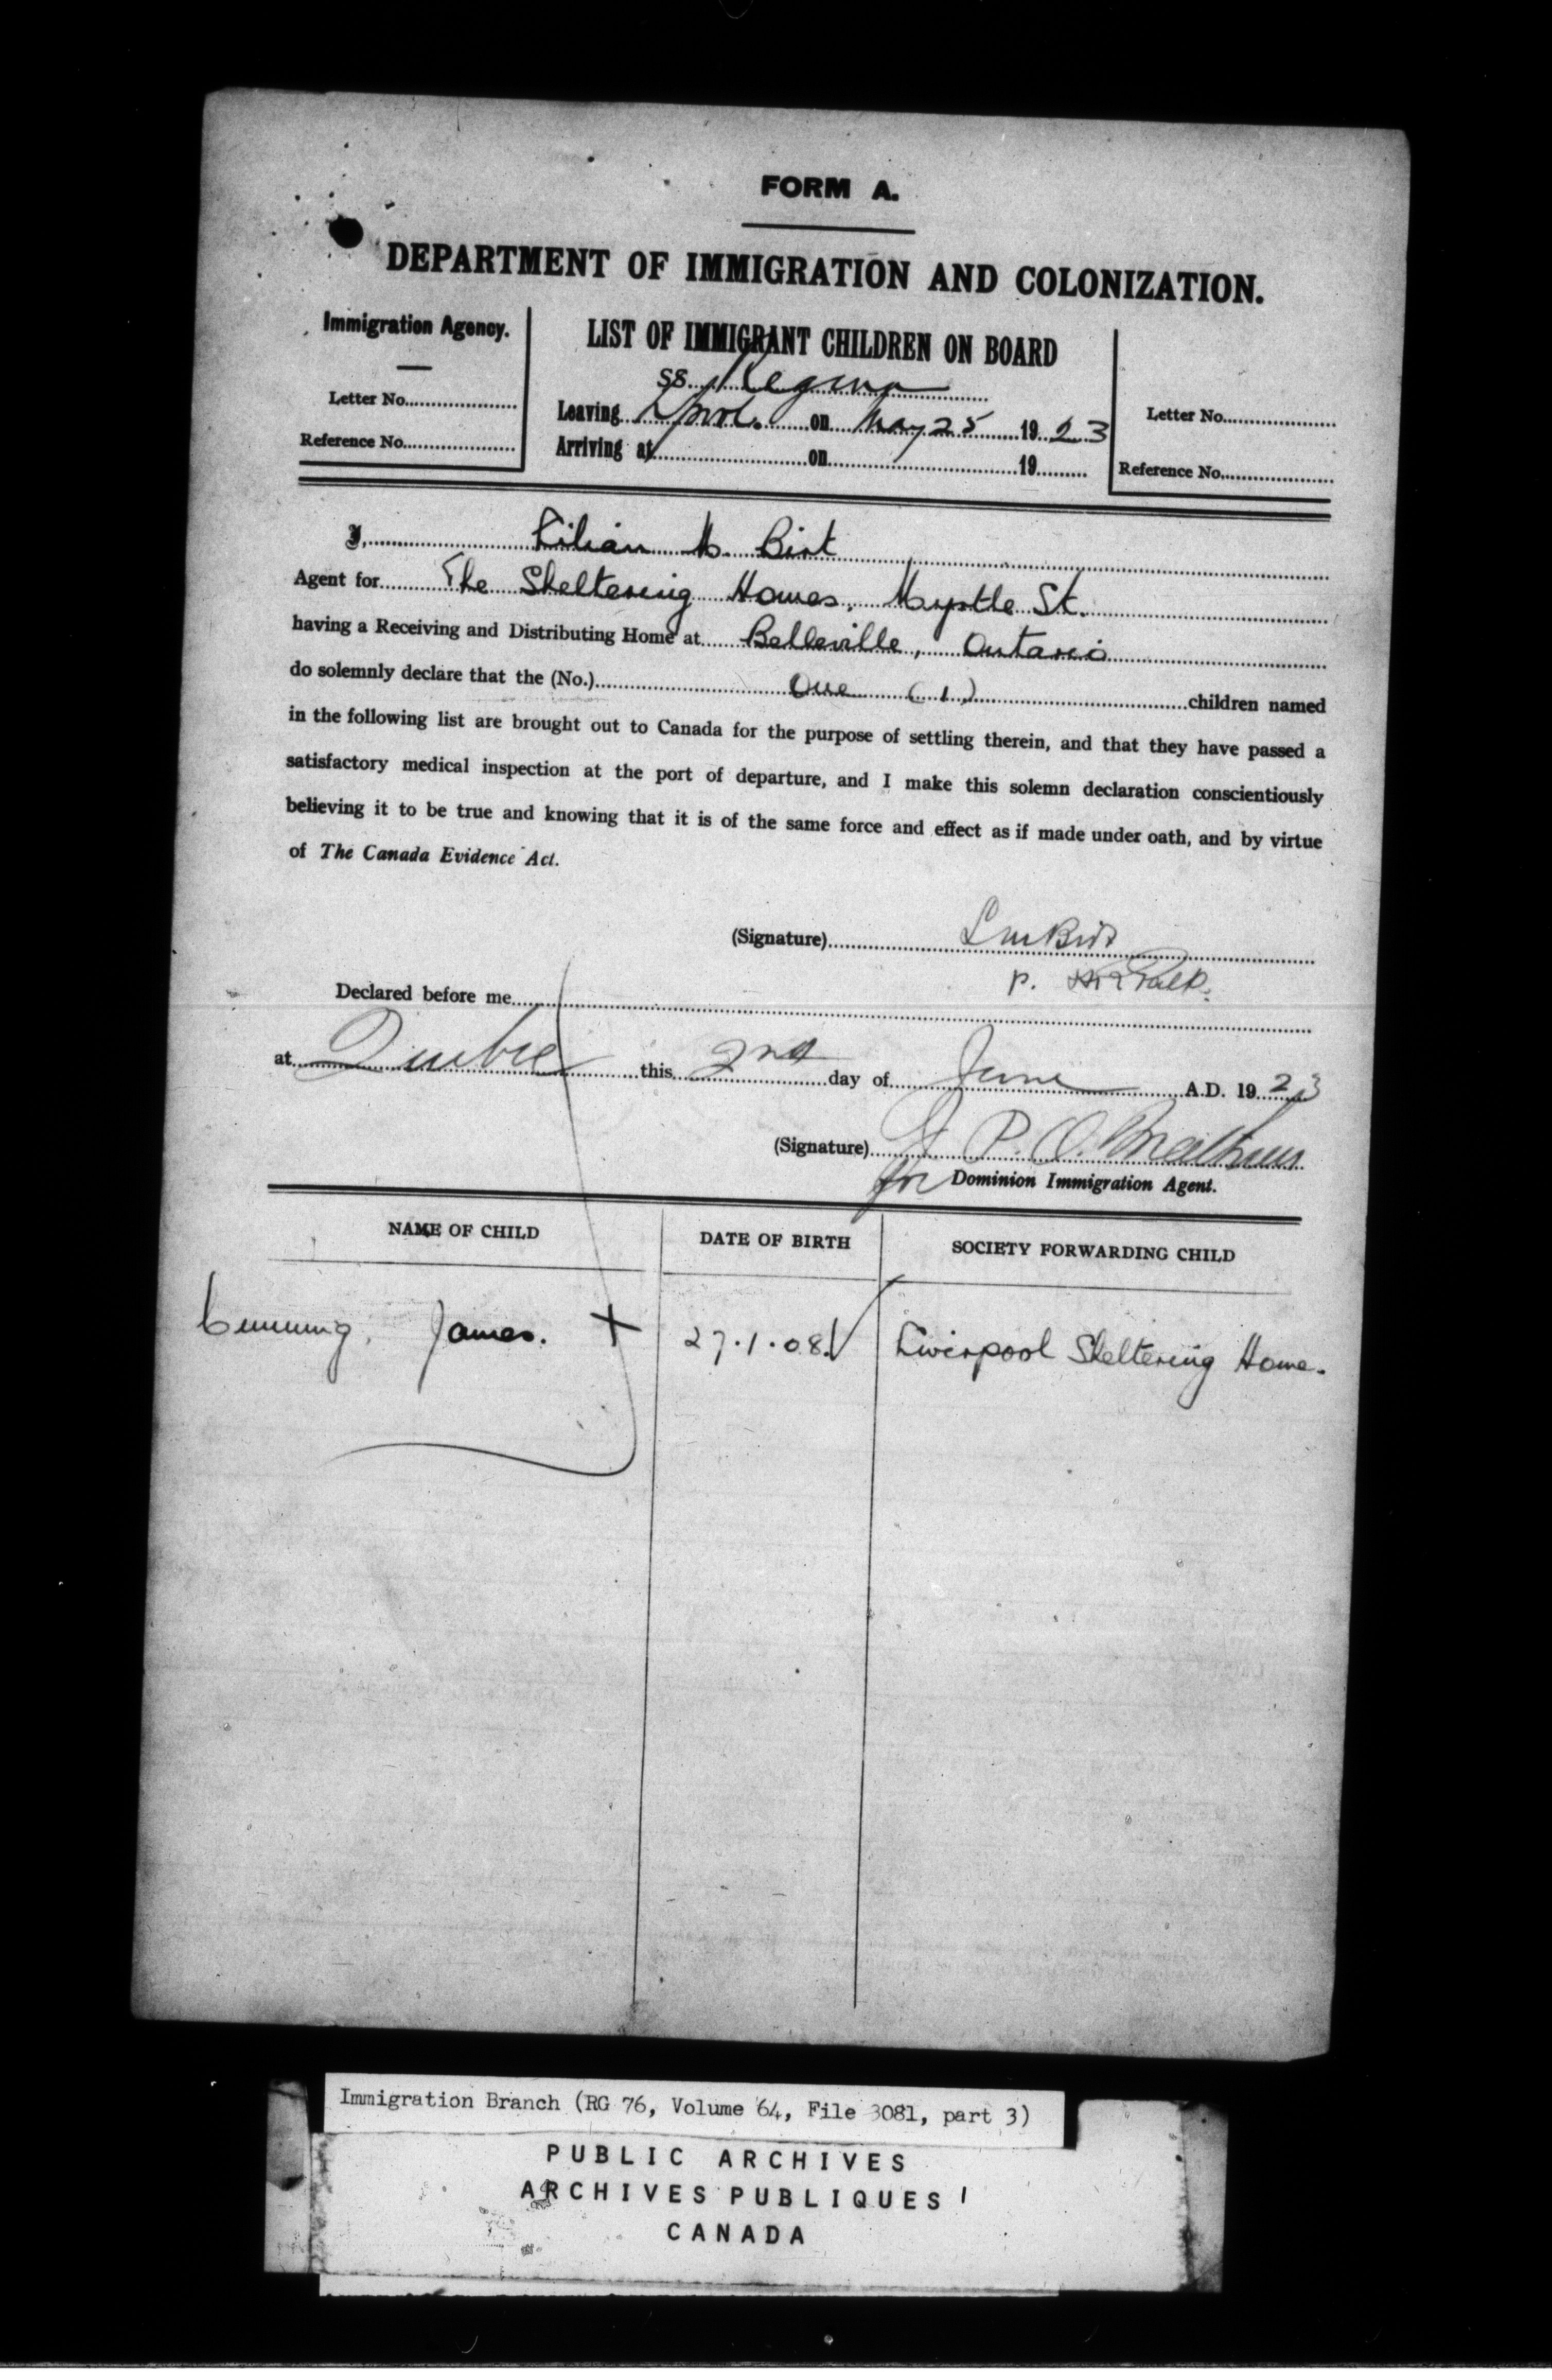 FORM A.
DEPARTMENT OF IMMIGRATION AND COLONIZATION.
Immigration Agency.
Letter No.
Reference No.
LIST OF IMMIGRANT CHILDREN ON BOARD
SS. Regina
Leaving L'pool. on May 25 1923
Arriving at on 19
Letter No.
Reference No.
I, Lilian M. Birt
Agent for The Sheltering Homes, Myrtle St.
having a Receiving and Distributing Home at Belleville, Ontario
do solemnly declare that the (No.) One (1) children named
in the following list are brought out to Canada for the purpose of settling therein, and that they have passed a
satisfactory medical inspection at the port of departure, and I make this solemn declaration conscientiously
believing it to be true and knowing that it is of the same force and effect as if made under oath, and by virtue
of The Canada Evidence Act.
(Signature) L M Birt
p.
Declared before me
at Quebec this 2nd day of June A.D. 1923
(Signature) P. O.
for Dominion Immigration Agent.
NAME OF CHILD DATE OF BIRTH SOCIETY FORWARDING CHILD
Cumming, James. + 27.1.08. Liverpool Sheltering Home.
Immigration Branch (RG 76, Volume 64, File 3081, part 3)
PUBLIC ARCHIVES
ARCHIVES PUBLIQUES
CANADA